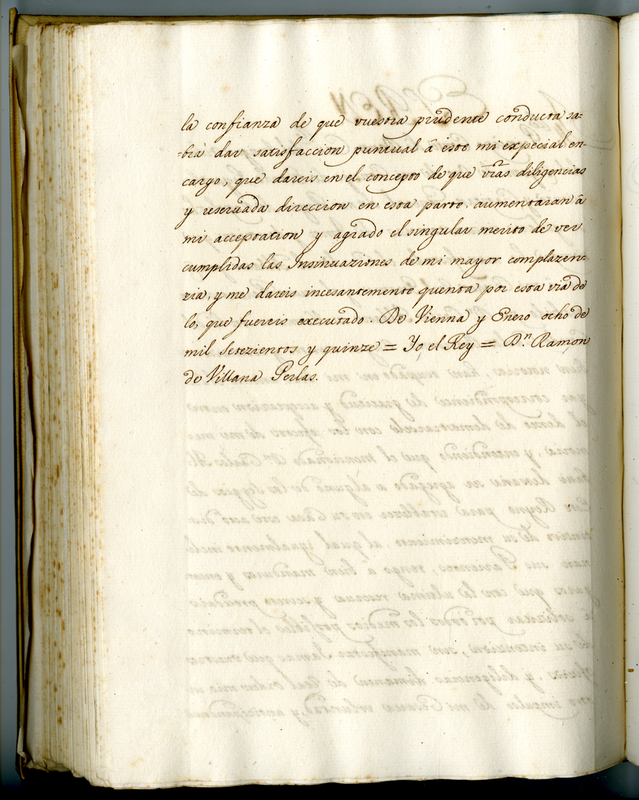 la confianza de que vuestra prudente conducta sa-
-bra dar satisfaccion puntual â este mi expecial en-
cargo, que dareis en el concepto de que vr̃as diligencias
y reservada direccion en esta parte, aumentaran â
mi acceptacion y agrado el singular merito de ver
cumplidas las Insinuaziones de mi mayor complazen-
zia, y me dareis incesantemente quenta por esta via de
lo, que fuereis executado. De Vienna y Enero ocho de
mil setezientos y quinze = Yo el Rey = D.n Ramon
de Villana Perlas.